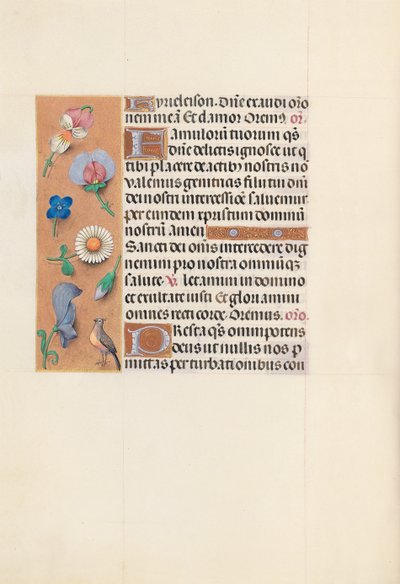 Kyrieleison. Dne exaudi oro
nem meā Et clamor Oremꝰ. or.
Famulorū tuorum qs
dñe delictis ignosce ut q
tibi placere de actibꝰ nostris nō
valemus genitricis filii tui dm̄
dei nostri intercessiōe saluemur
per eundem xpristum dominū
nostrū amen
Sancti dei om̄s intercedere dig
nemini pro nostra omniūqꝫ
salute. V̶. letamini in domino
et exultate iusti Et gloriamini
omnes recti corde. Oremus. oro.
Presta qs omnipotens
deus ut nullis nos p
mittas perturbationibus con